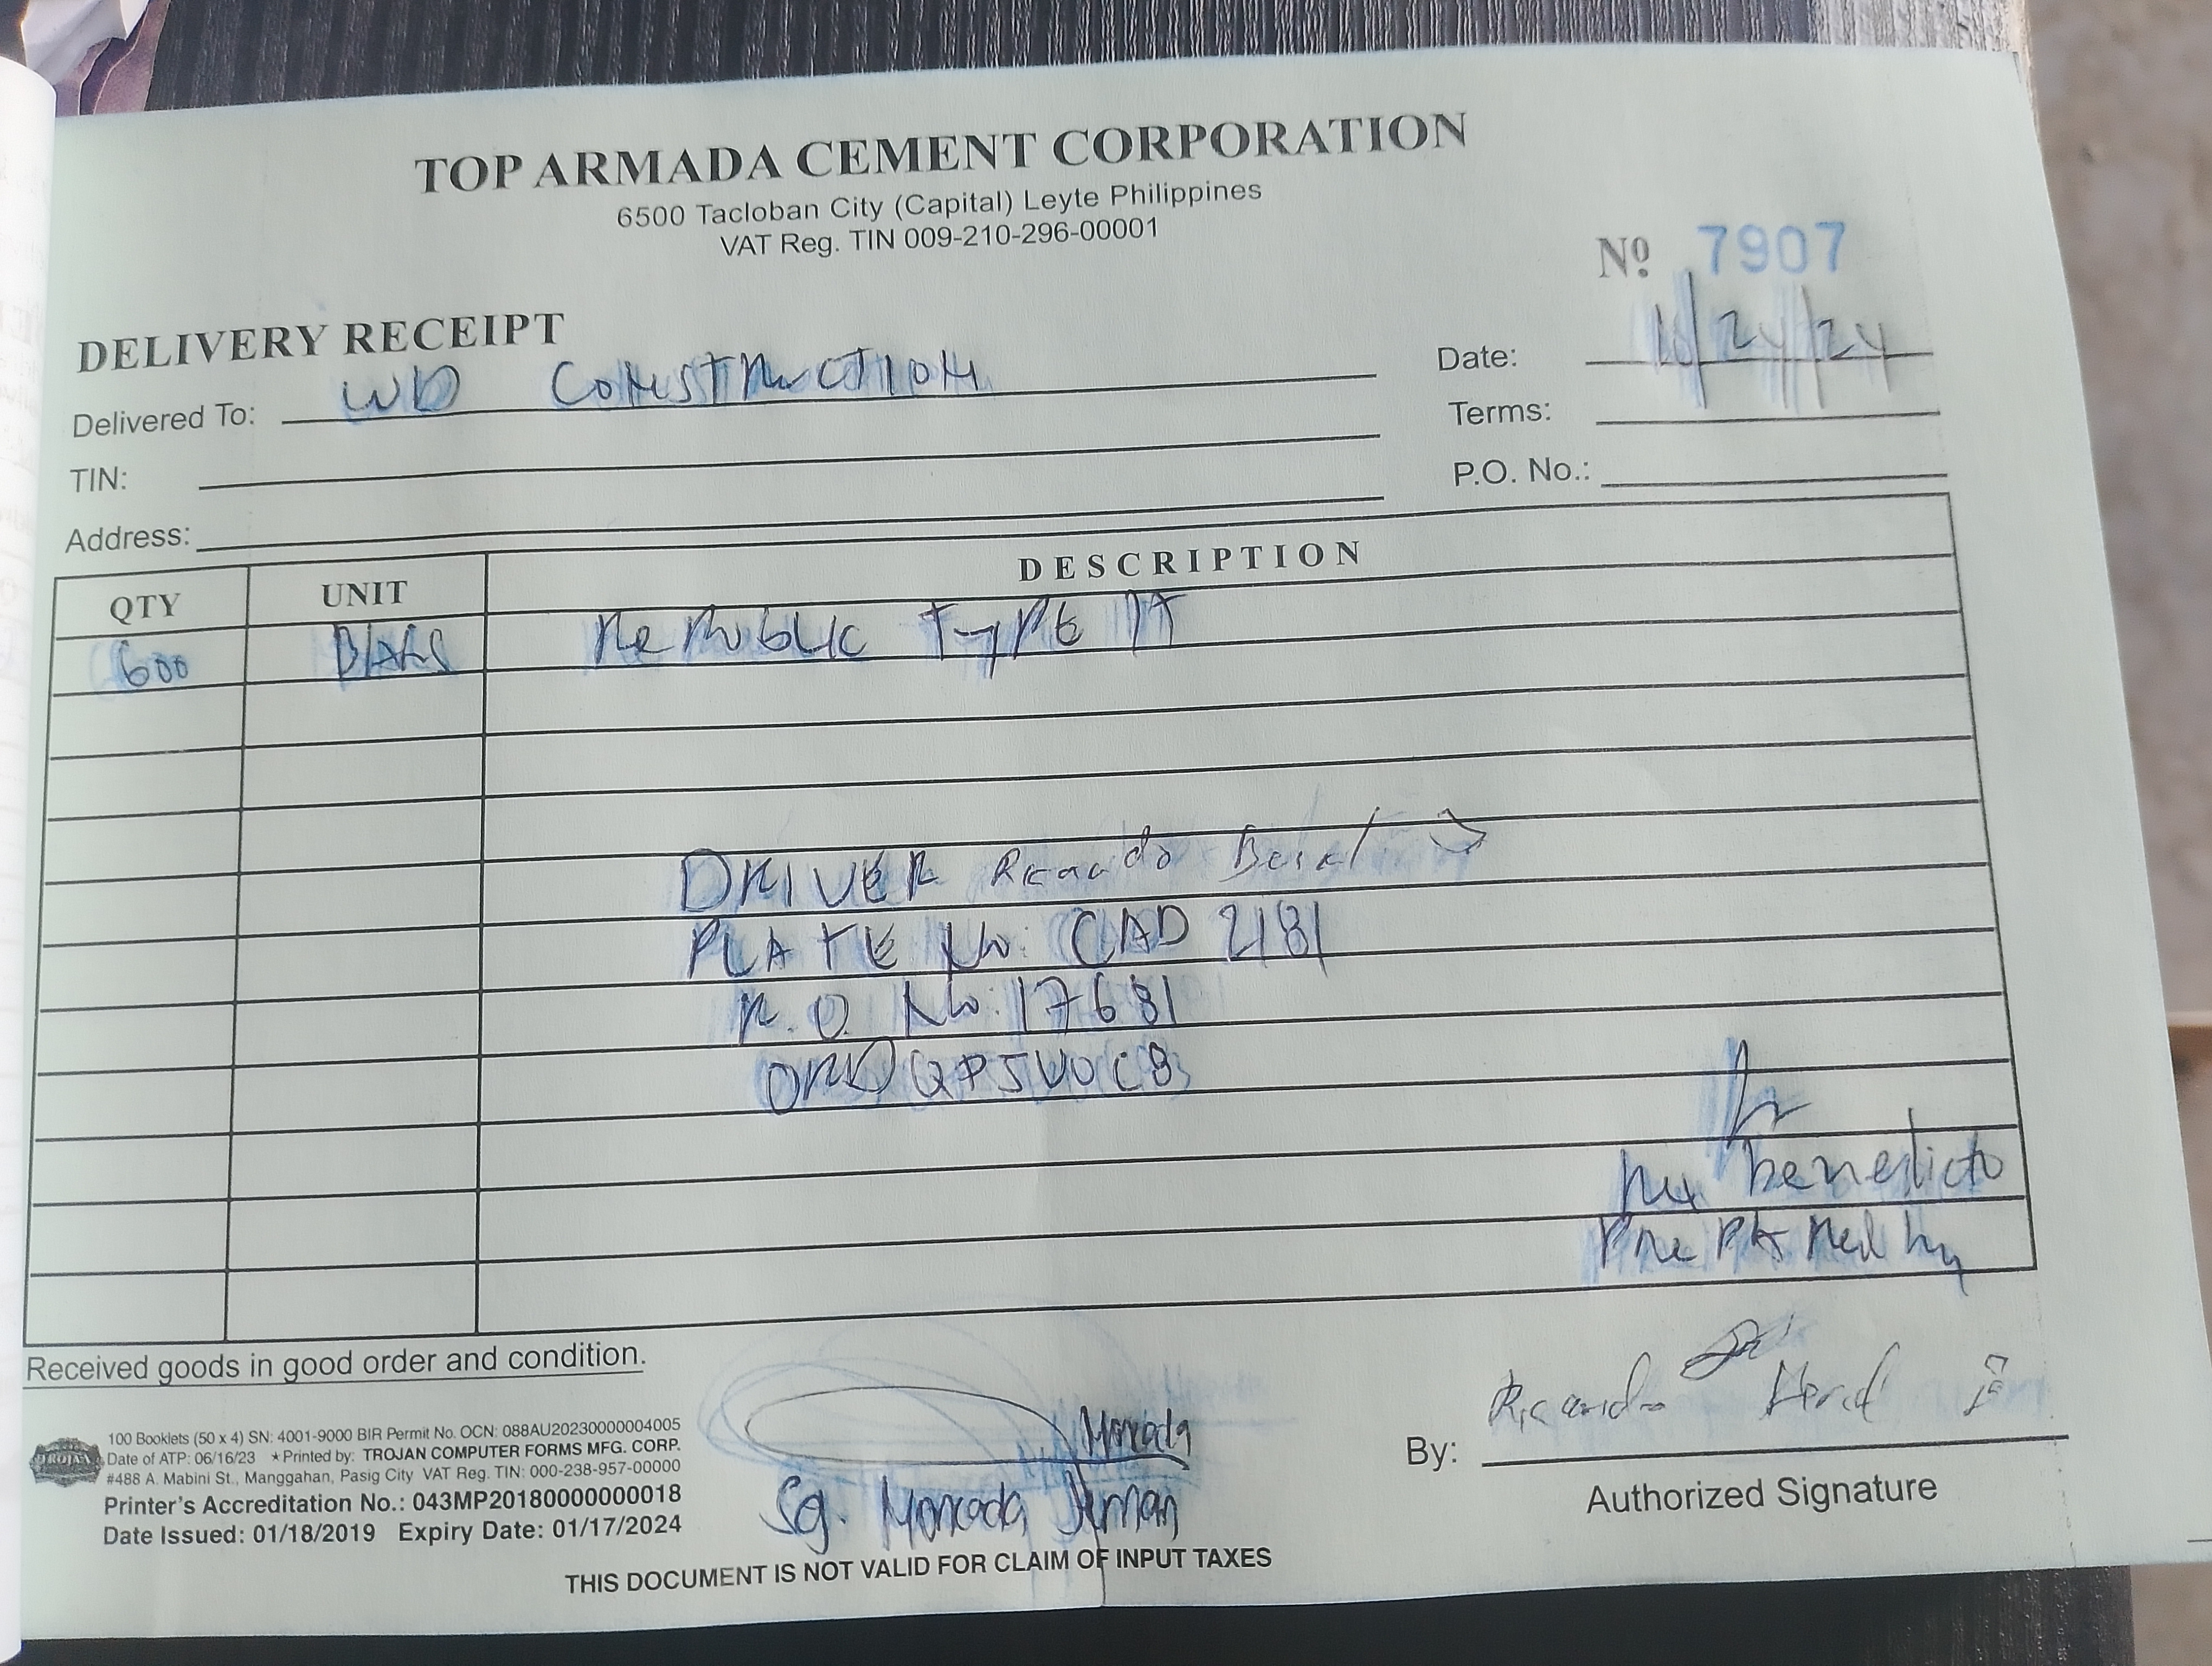 TOP ARMADA CEMENT CORPORATION
6500 Tacloban City (Capital) Leyte Philippines
VAT Reg. TIN 009-210-296-00001
Nº 7907
DELIVERY RECEIPT
Date: /24/24
Delivered To: WD CONSTRUCTION
Terms:
TIN:
P.O. No.:
Address:
QTY UNIT DESCRIPTION
600 BAGS REPUBLIC TYPE 1T
DRIVER
PLATE No: CAD 2181
P.O. No: 17681
ORD QP5VUOCB
benedicto
PREPARED by
Received goods in good order and condition.
100 Booklets (50 x 4) SN: 4001-9000 BIR Permit No. OCN: 088AU20230000004005
Date of ATP: 06/16/23 ★Printed by: TROJAN COMPUTER FORMS MFG. CORP.
#488 A. Mabini St., Manggahan, Pasig City VAT Reg. TIN: 000-238-957-00000
Printer's Accreditation No.: 043MP20180000000018
Date Issued: 01/18/2019 Expiry Date: 01/17/2024
TROJAN
Moncada
Sg. Moncada
By: Ricardo
Authorized Signature
THIS DOCUMENT IS NOT VALID FOR CLAIM OF INPUT TAXES